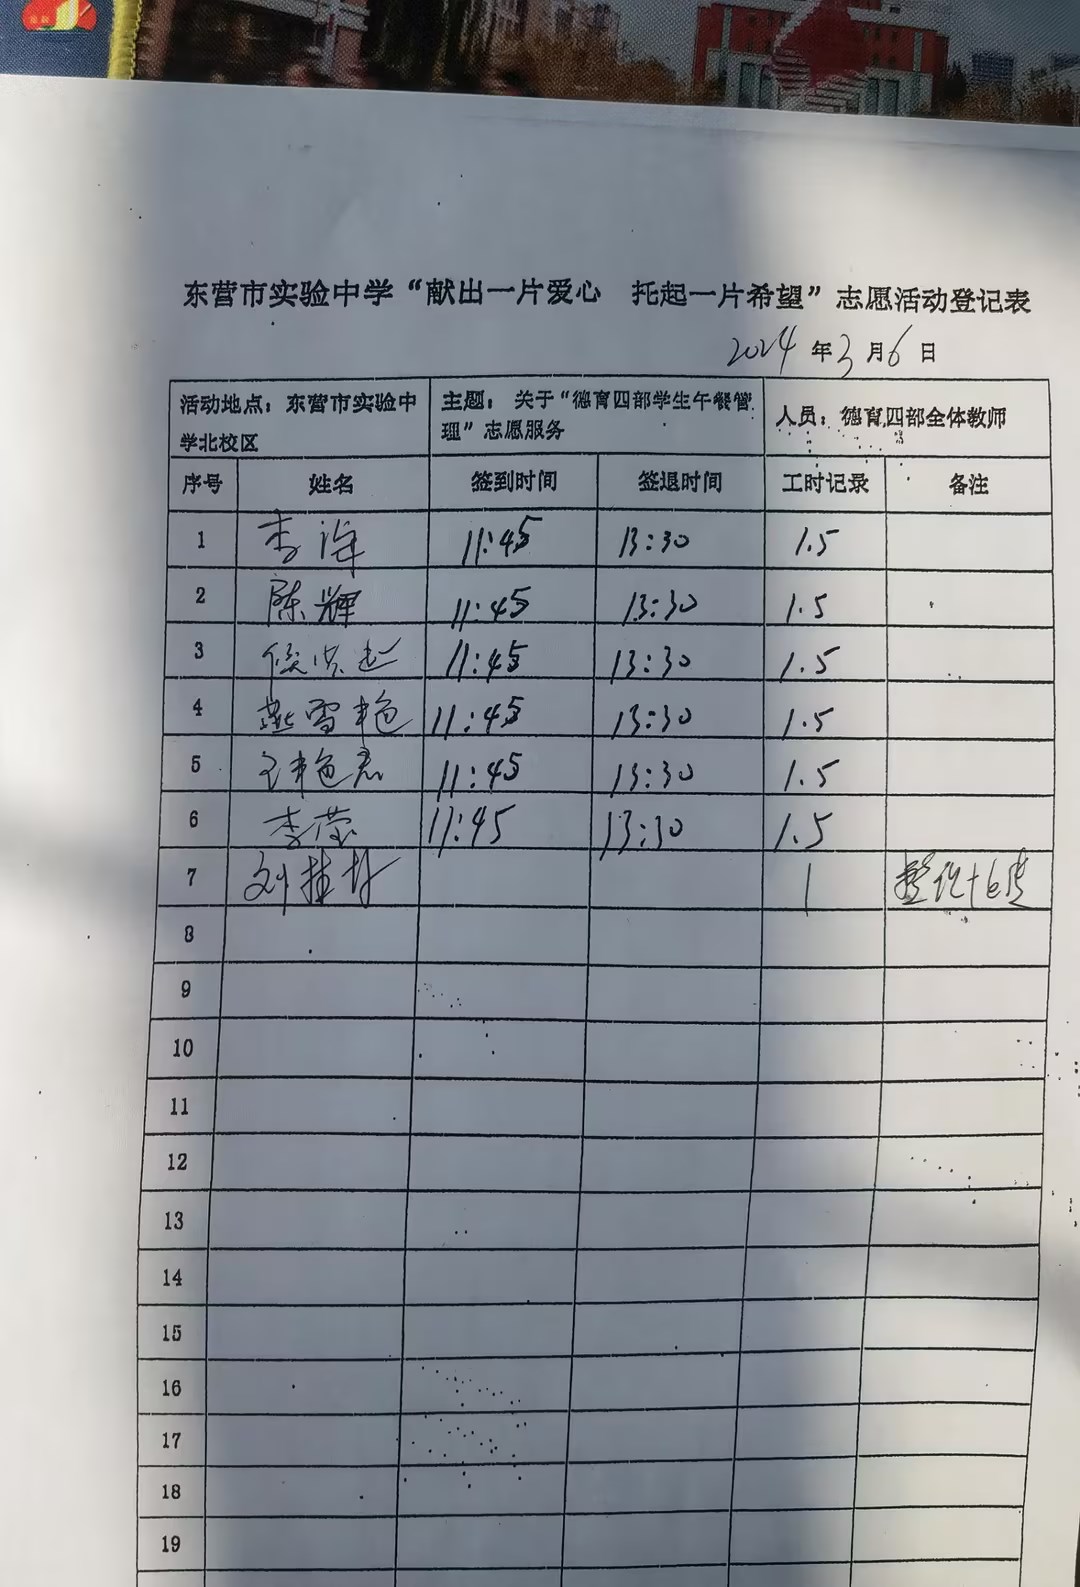 东营市实验中学“献出一片爱心 托起一片希望”志愿活动登记表
2024年3月6日
活动地点：东营市实验中学北校区 主题：关于“德育四部学生午餐管理”志愿服务 人员：德育四部全体教师
序号 姓名 签到时间 签退时间 工时记录 备注
1 李 11:45 13:30 1.5
2 陈辉 11:45 13:30 1.5
3 11:45 13:30 1.5
4 燕雪艳 11:45 13:30 1.5
5 王艳君 11:45 13:30 1.5
6 李莹 11:45 13:30 1.5
7 刘桂 1
8
9
10
11
12
13
14
15
16
17
18
19